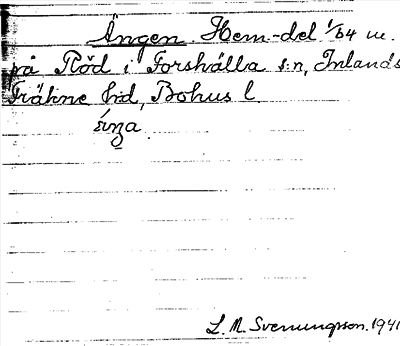 Ängen. Hem.-del 1/64 m.
på Röd i Forshälla s:n, Inlands
Fräkne hd, Bohus l.
äŋa
L. M. Svenungsson. 1941